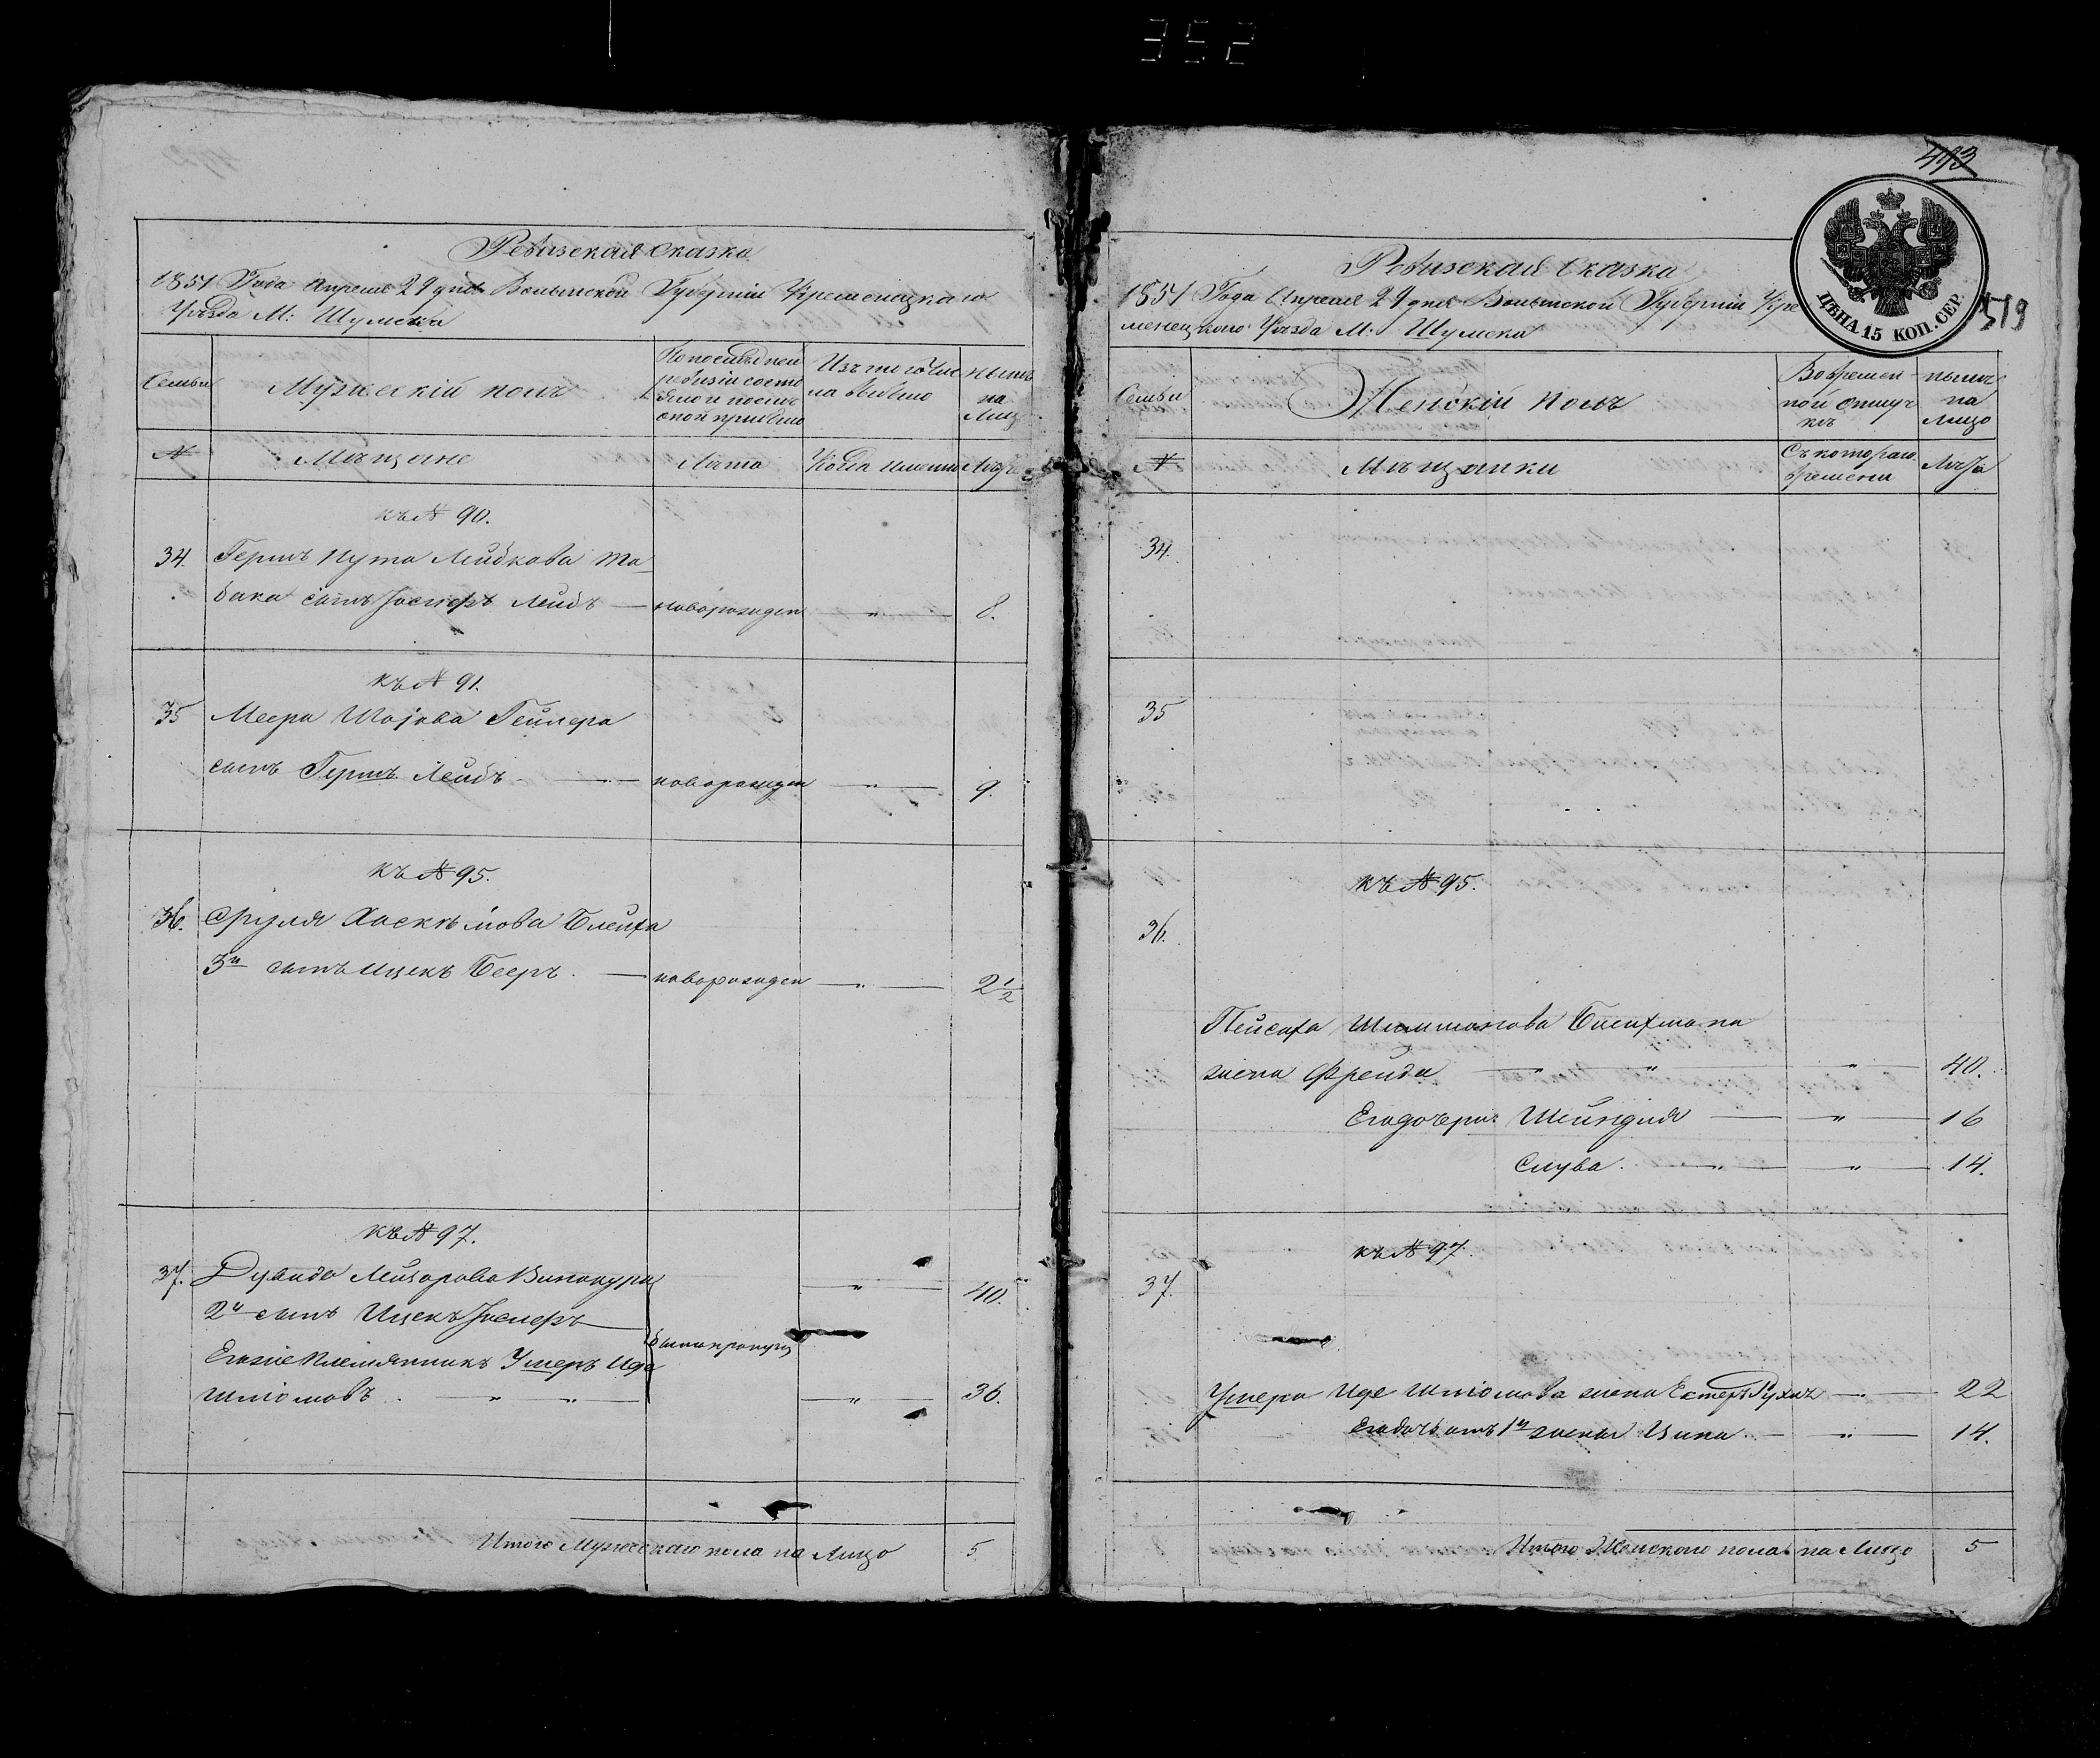 352
Ревизская сказка
1851 Года Апреля 29 дня Волынской Губерніи Кременецкаго
Уѣзда М: Шумска
Семьи
Мужескій полъ
По послѣдней
ревизіи состо
яло и послѣ
оной прибыло
Изъ того чис
ла выбыло
нынѣ
на
Лицо
№
Мѣщане
Лѣта
Когда именно
Лѣта
къ № 90.
34. Герша Нута Лейбкова Та
бака сынъ Іосифъ Лейбъ — новорожден — " — 8.
къ № 91.
35 Меера Шаіова Гейлера
сынъ Гершъ Лейбъ — новорожден — " — 9.
къ № 95.
36. Сруля Хаскелмова Блейха
3й сынъ Ицекъ Бееръ — новорожден — " — 2 1/2
къ № 97.
37. Дувида Лейзорова Винокура — " — 40.
2й сынъ Ицекъ Іосифъ
были пропущ
Егоже племянникъ Ушеръ Иде
Шліомовъ — " — " — 36.
Итого Мужескаго пола на Лицо 5
493
ЦѢНА 15 КОП. СЕР.
519
Ревизская сказка
1851 Года Апреля 29 дня Волынской Губерніи Кре
менецкаго Уѣзда М: Шумска
Семьи
Женскій полъ
Во времен
ной отлуч
кѣ
нынѣ
на
Лицо
№
Мѣщанки
Съ котораго
времени
Лѣта
34.
35
къ № 95.
36.
Пейсаха Блейхмана
жена Фрейда — " — " — " — 40.
Его дочери: Шейндля — " — 16
Слува — " — " — 14.
къ № 97.
37.
Ушера Иде Шліомова жена Естеръ Рухля — " — 22
Его дочь отъ 1й жены Ципа — " — 14.
Итого Женскаго пола на Лицо 5